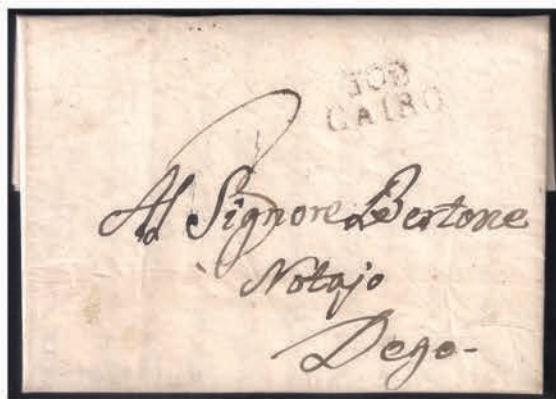 108
CAIRO
Al Signore Bertone
Notajo
Dego-